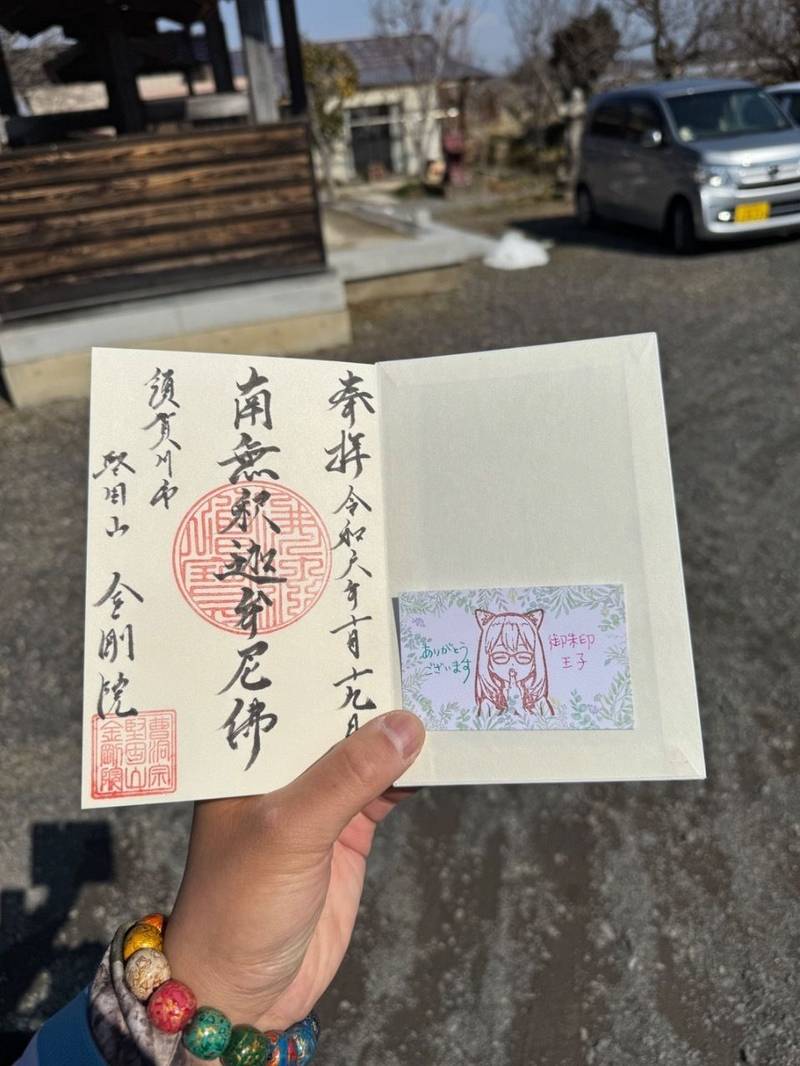 奉拝 令和六年十二月十九日
南無釈迦牟尼佛
須賀川市
堅田山 金剛院
曹洞宗
堅田山
金剛院
ありがとう
ございます
御朱印
王子